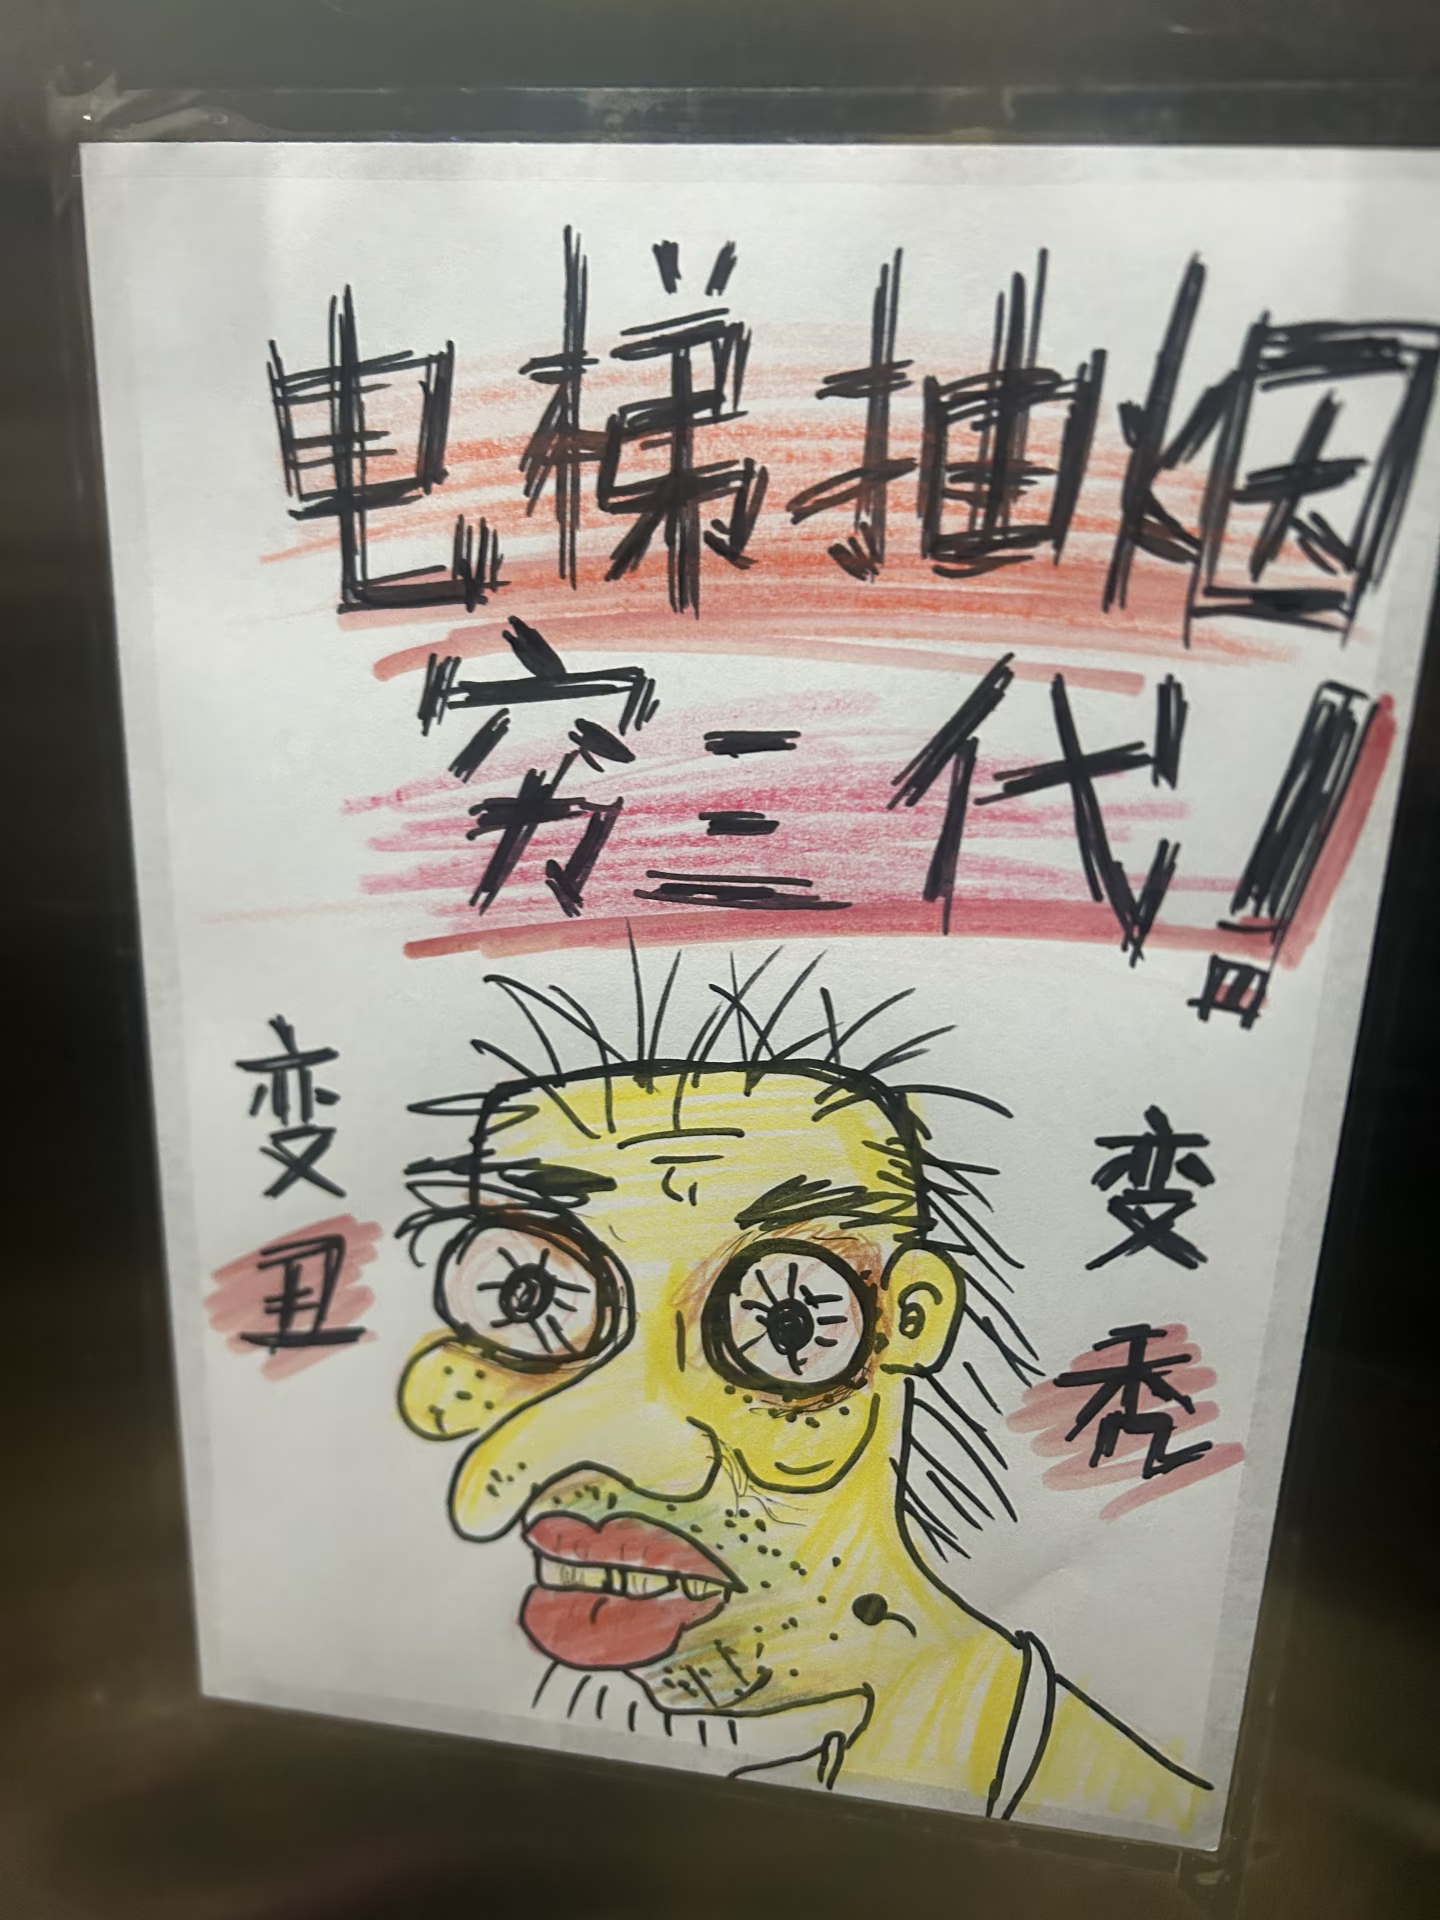 电梯抽烟
穷三代!
变丑
变秃